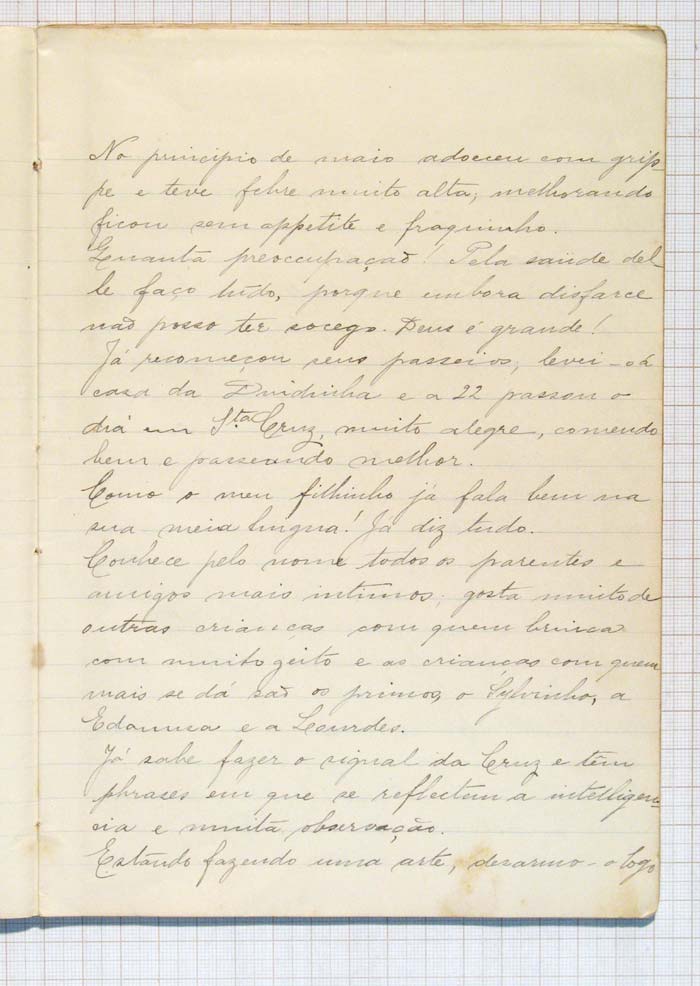 No principio de maio adoeceu com grip-
pe e teve febre muito alta; melhorando
ficou sem appetite e fraquinho.
Quanta preoccupação! Pela saúde del-
le faço tudo, porque embora disfarce
não posso ter socego. Deus é grande!
Já recomeçou seus passeios; levei-o á
casa da Dindinha e a 22 passou o
dia em Sta Cruz, muito alegre, comendo
bem e passando melhor.
Como o meu filhinho já fala bem na
sua meia lingua! Já diz tudo.
Conhece pelo nome todos os parentes e
amigos mais intimos; gosta muito de
outras crianças com quem brinca
com muito geito e as crianças com quem
mais se dá são os primos, o Sylvinho, a
e a Lourdes.
Já sabe fazer o signal da Cruz e tem
phrases em que se reflectem a intelligen-
cia e muita observação.
Estando fazendo uma arte, desarmo-o logo